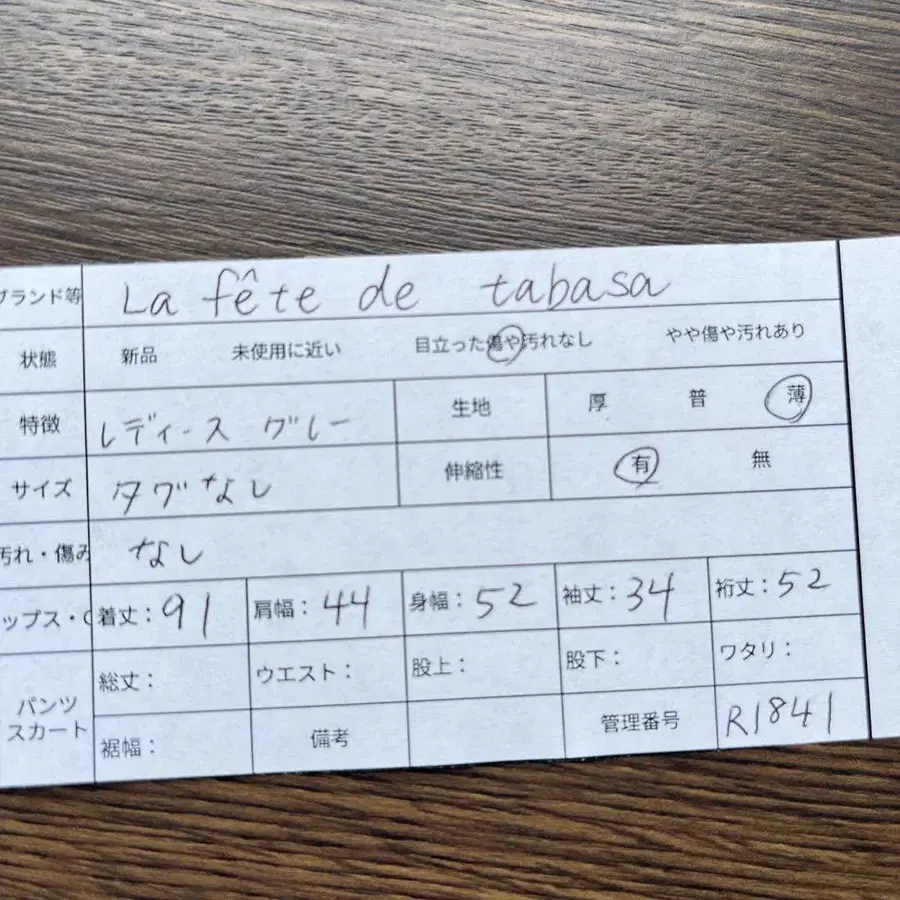 ブランド等 La fête de tabasa
状態 新品 未使用に近い 目立った傷や汚れなし やや傷や汚れあり
特徴 レディース グレー 生地 厚 普 薄
サイズ タグなし 伸縮性 有 無
汚れ・傷み なし
ップス・ 着丈：91 肩幅：44 身幅：52 袖丈：34 裄丈：52
パンツ
スカート
総丈： ウエスト： 股上： 股下： ワタリ：
裾幅： 備考 管理番号 R1841